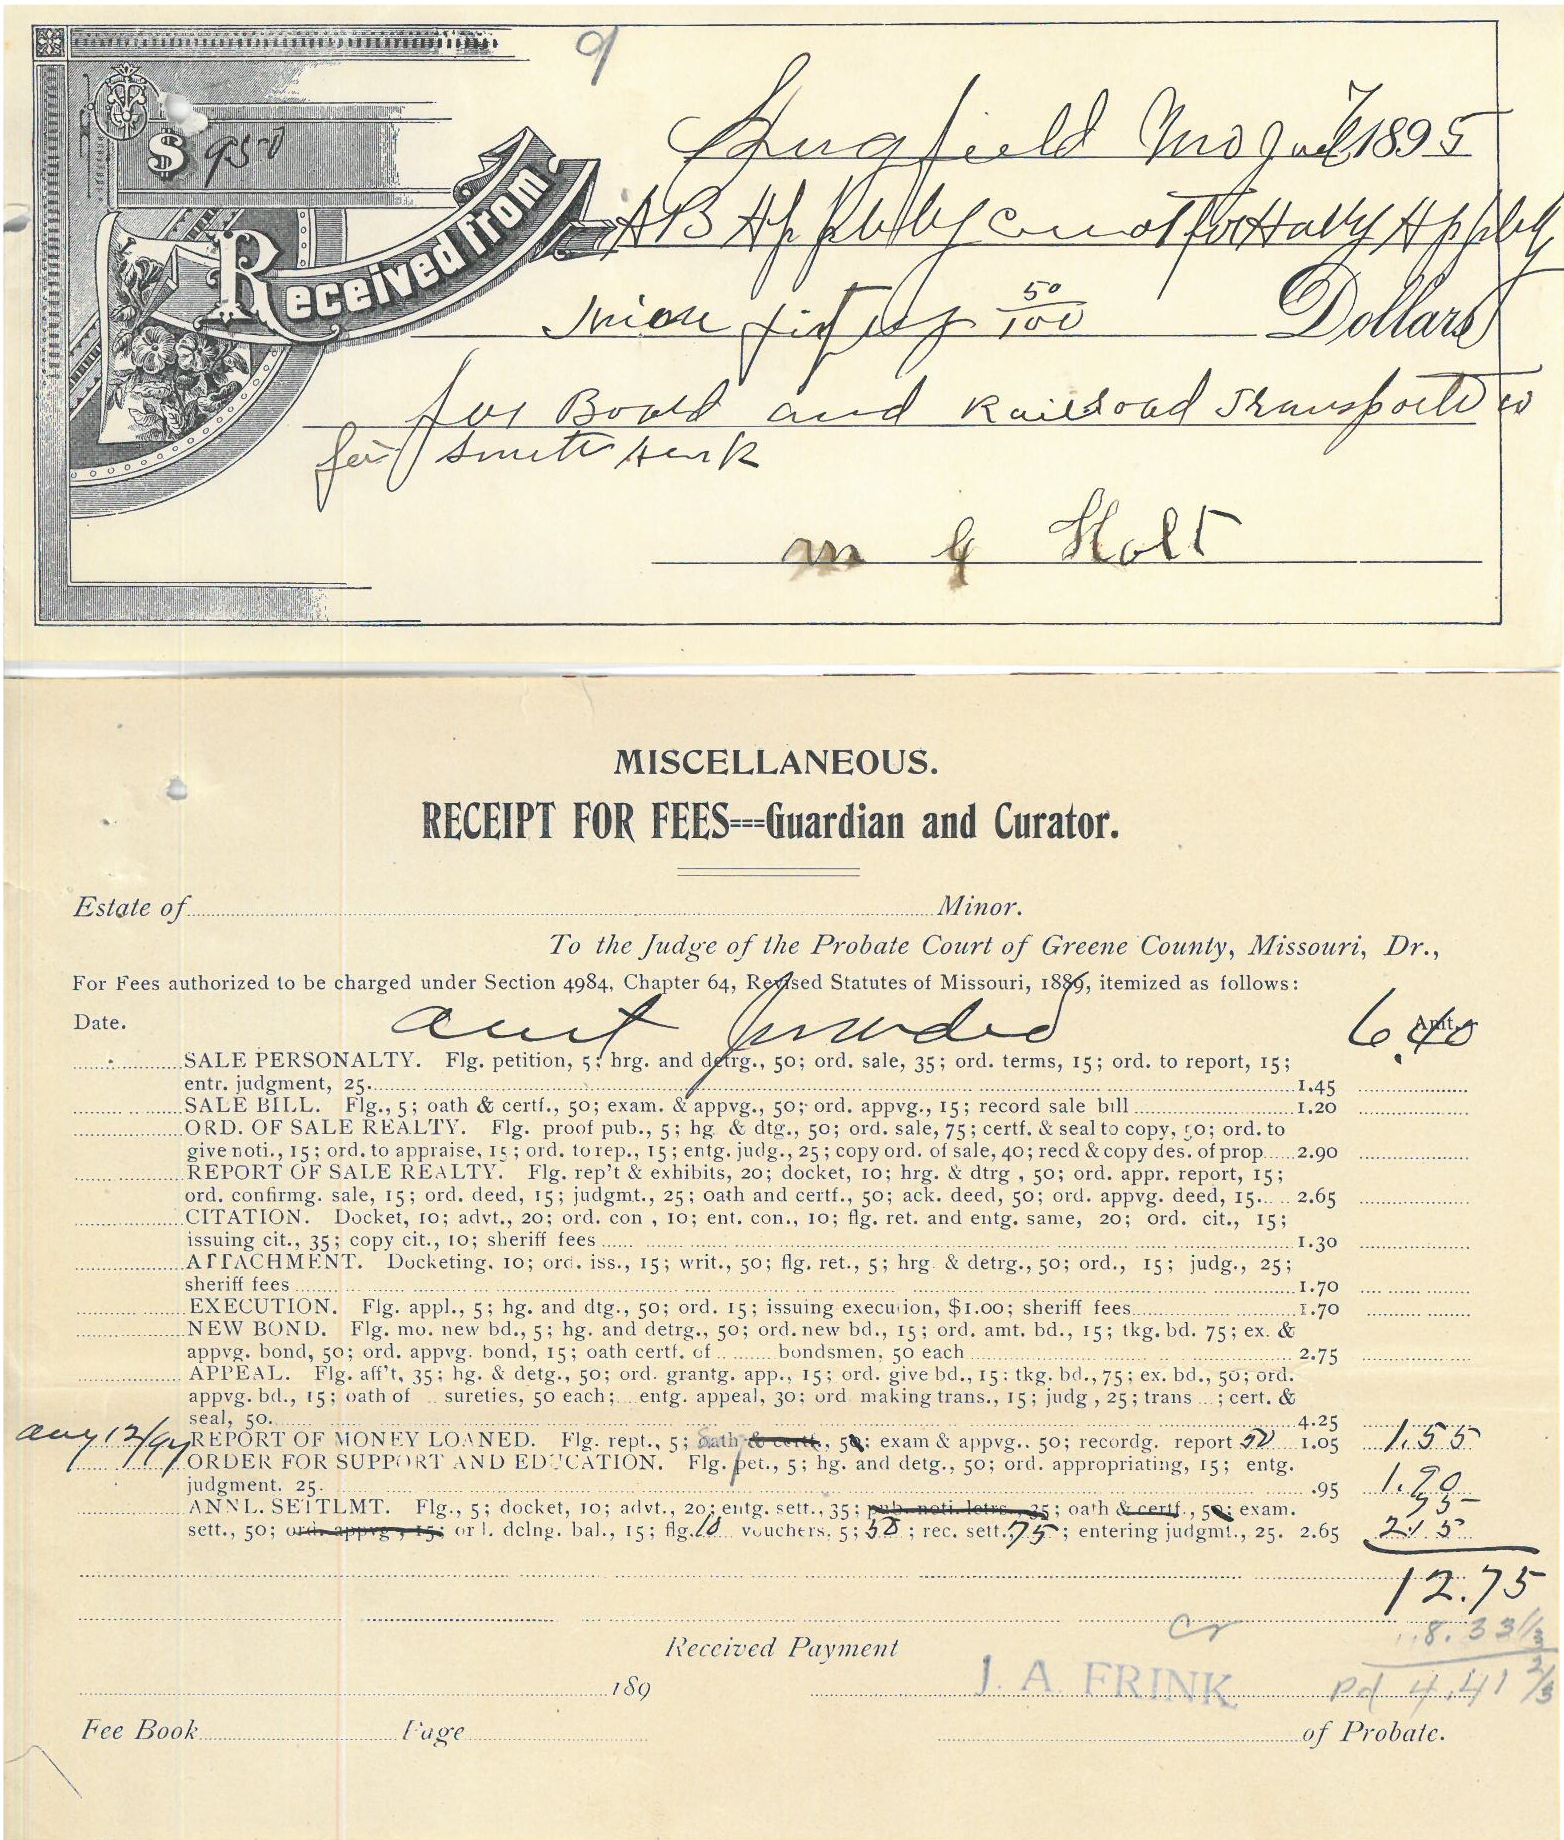 9
$ 950
Springfield Mo Jul 7 1895
Received from A B Appleby Curator for Harry Appleby
50/100 Dollars
for Board and Railroad Transportatio
for
M G Holt
MISCELLANEOUS.
RECEIPT FOR FEES===Guardian and Curator.
Estate of Minor.
To the Judge of the Probate Court of Greene County, Missouri, Dr.,
For Fees authorized to be charged under Section 4984, Chapter 64, Revised Statutes of Missouri, 1889, itemized as follows:
Date. amt Amt. 6.40
SALE PERSONALTY. Flg. petition, 5; hrg. and detrg., 50; ord. sale, 35; ord. terms, 15; ord. to report, 15;
entr. judgment, 25. 1.45
SALE BILL. Flg., 5; oath & certf., 50; exam. & appvg., 50; ord. appvg., 15; record sale bill 1.20
ORD. OF SALE REALTY. Flg. proof pub., 5; hg & dtg., 50; ord. sale, 75; certf. & seal to copy, 50; ord. to
give noti., 15; ord. to appraise, 15; ord. to rep., 15; entg. judg., 25; copy ord. of sale, 40; recd & copy des. of prop 2.90
REPORT OF SALE REALTY. Flg. rep't & exhibits, 20; docket, 10; hrg. & dtrg , 50; ord. appr. report, 15;
ord. confirmg. sale, 15; ord. deed, 15; judgmt., 25; oath and certf., 50; ack. deed, 50; ord. appvg. deed, 15. 2.65
CITATION. Docket, 10; advt., 20; ord. con , 10; ent. con., 10; flg. ret. and entg. same, 20; ord. cit., 15;
issuing cit., 35; copy cit., 10; sheriff fees 1.30
ATTACHMENT. Docketing, 10; ord. iss., 15; writ., 50; flg. ret., 5; hrg & detrg., 50; ord., 15; judg., 25;
sheriff fees 1.70
EXECUTION. Flg. appl., 5; hg. and dtg., 50; ord. 15; issuing execution, $1.00; sheriff fees 1.70
NEW BOND. Flg. mo. new bd., 5; hg. and detrg., 50; ord. new bd., 15; ord. amt. bd., 15; tkg. bd. 75; ex. &
appvg. bond, 50; ord. appvg. bond, 15; oath certf. of bondsmen, 50 each 2.75
APPEAL. Flg. aff't, 35; hg. & detg., 50; ord. grantg. app., 15; ord. give bd., 15; tkg. bd., 75; ex. bd., 50; ord.
appvg. bd., 15; oath of sureties, 50 each; entg. appeal, 30; ord making trans., 15; judg , 25; trans ; cert. &
seal, 50. 4.25
Aug 12/97 REPORT OF MONEY LOANED. Flg. rept., 5; oath & certf., 50; exam & appvg.. 50; recordg. report 50 1.05 1.55
ORDER FOR SUPPORT AND EDUCATION. Flg. pet., 5; hg. and detg., 50; ord. appropriating, 15; entg.
judgment. 25. .95 1.90
95
ANNL. SETTLMT. Flg., 5; docket, 10; advt., 20; entg. sett., 35; pub. noti. letrs., 35; oath & certf., 50; exam.
sett., 50; ord. appvg , 15; or l. dclng. bal., 15; flg. 10 vouchers, 5; 50 ; rec. sett. 75 ; entering judgmt., 25. 2.65 2.15
12.75
Cr 8.33 1/3
Received Payment
189 J. A. FRINK pd 4.41 2/3
Fee Book Page of Probate.